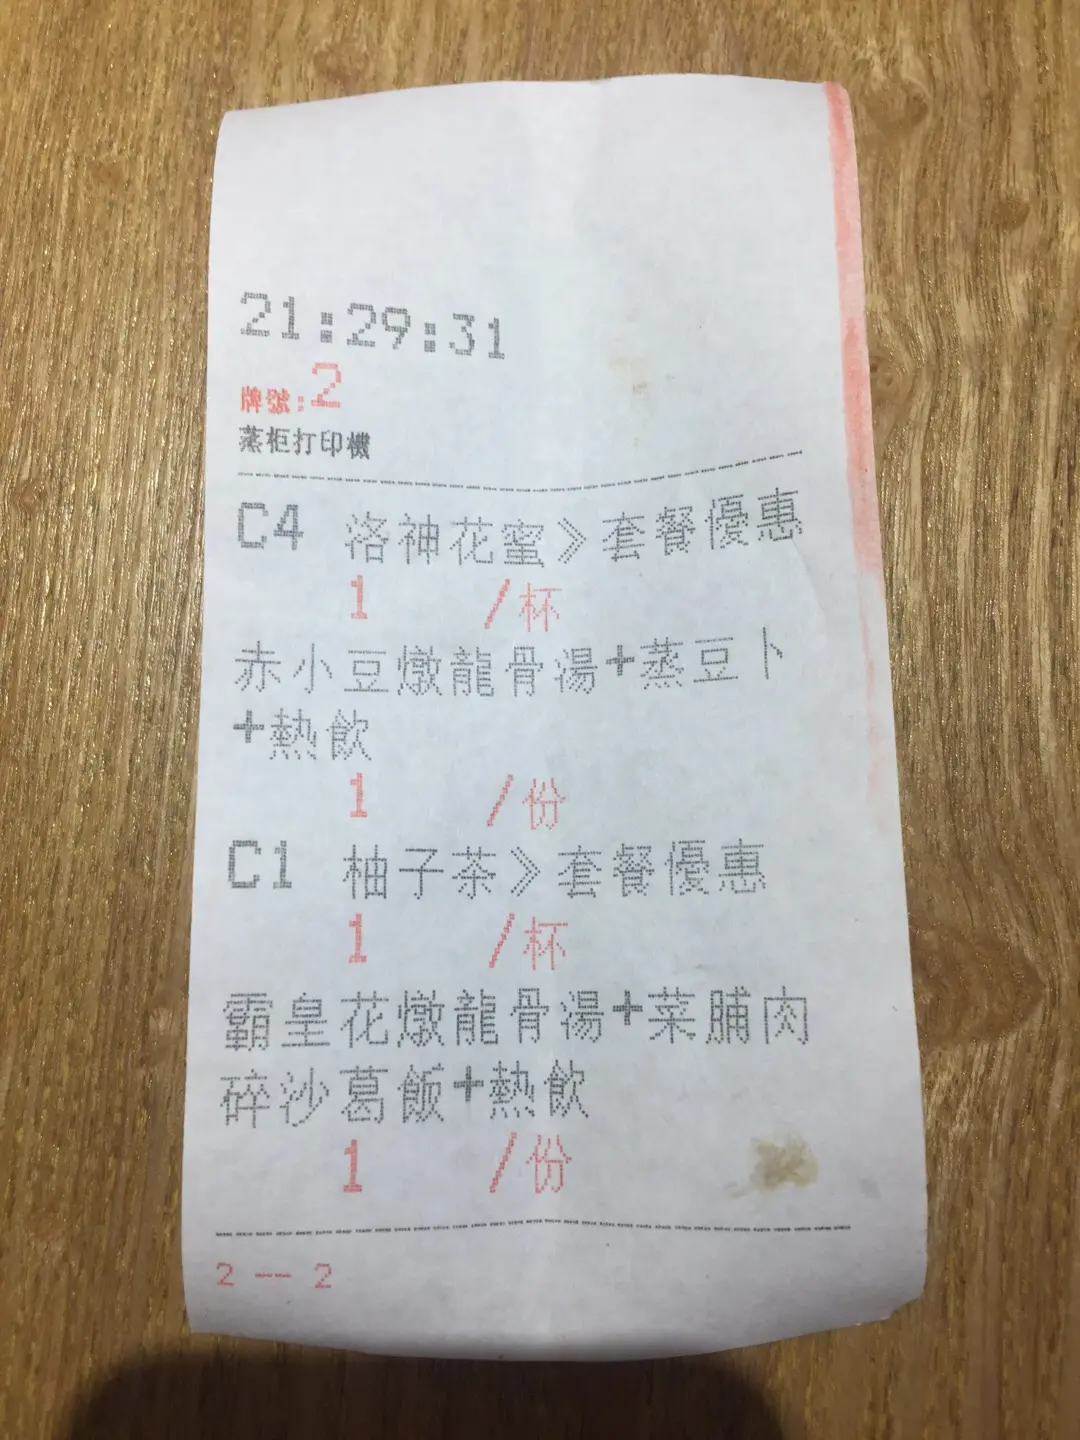 21:29:31
牌號:2
蒸柜打印機
C4 洛神花蜜》套餐優惠
1 /杯
赤小豆燉龍骨湯+蒸豆卜
+熱飲
1 /份
C1 柚子茶》套餐優惠
1 /杯
霸皇花燉龍骨湯+菜脯肉
碎沙葛飯+熱飲
1 /份
2 -- 2